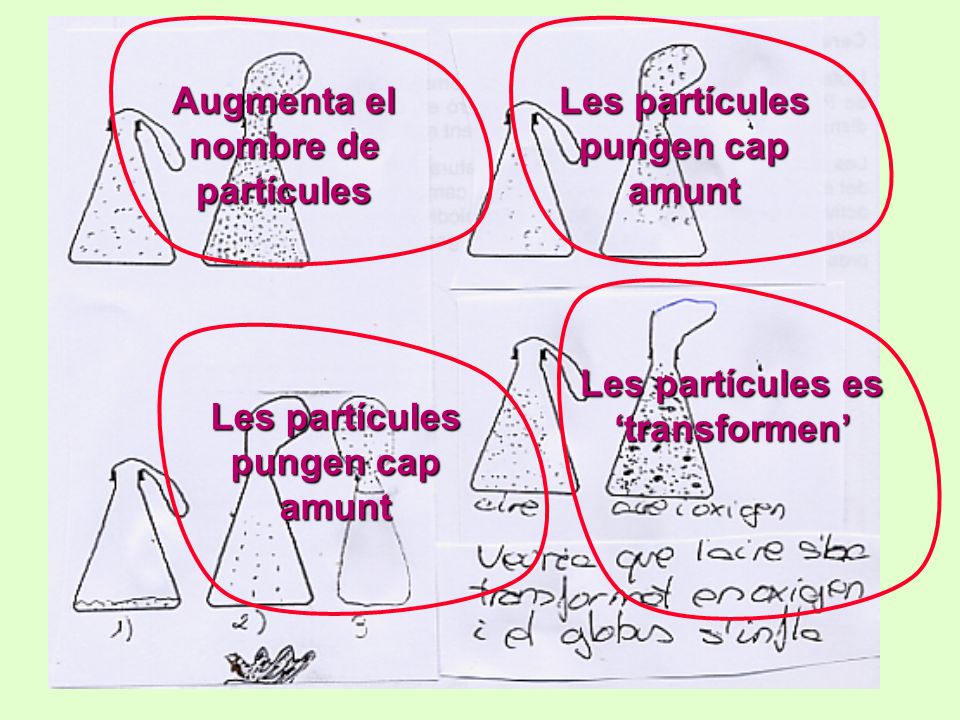 Augmenta el
nombre de
partícules
Les partícules
pungen cap
amunt
Les partícules
pungen cap
amunt
1)
2)
3
Les partícules es
‘transformen’
aire
aire i oxigen
Veuria que l'aire s'ha
transformat en oxigen
i el globus s'infla